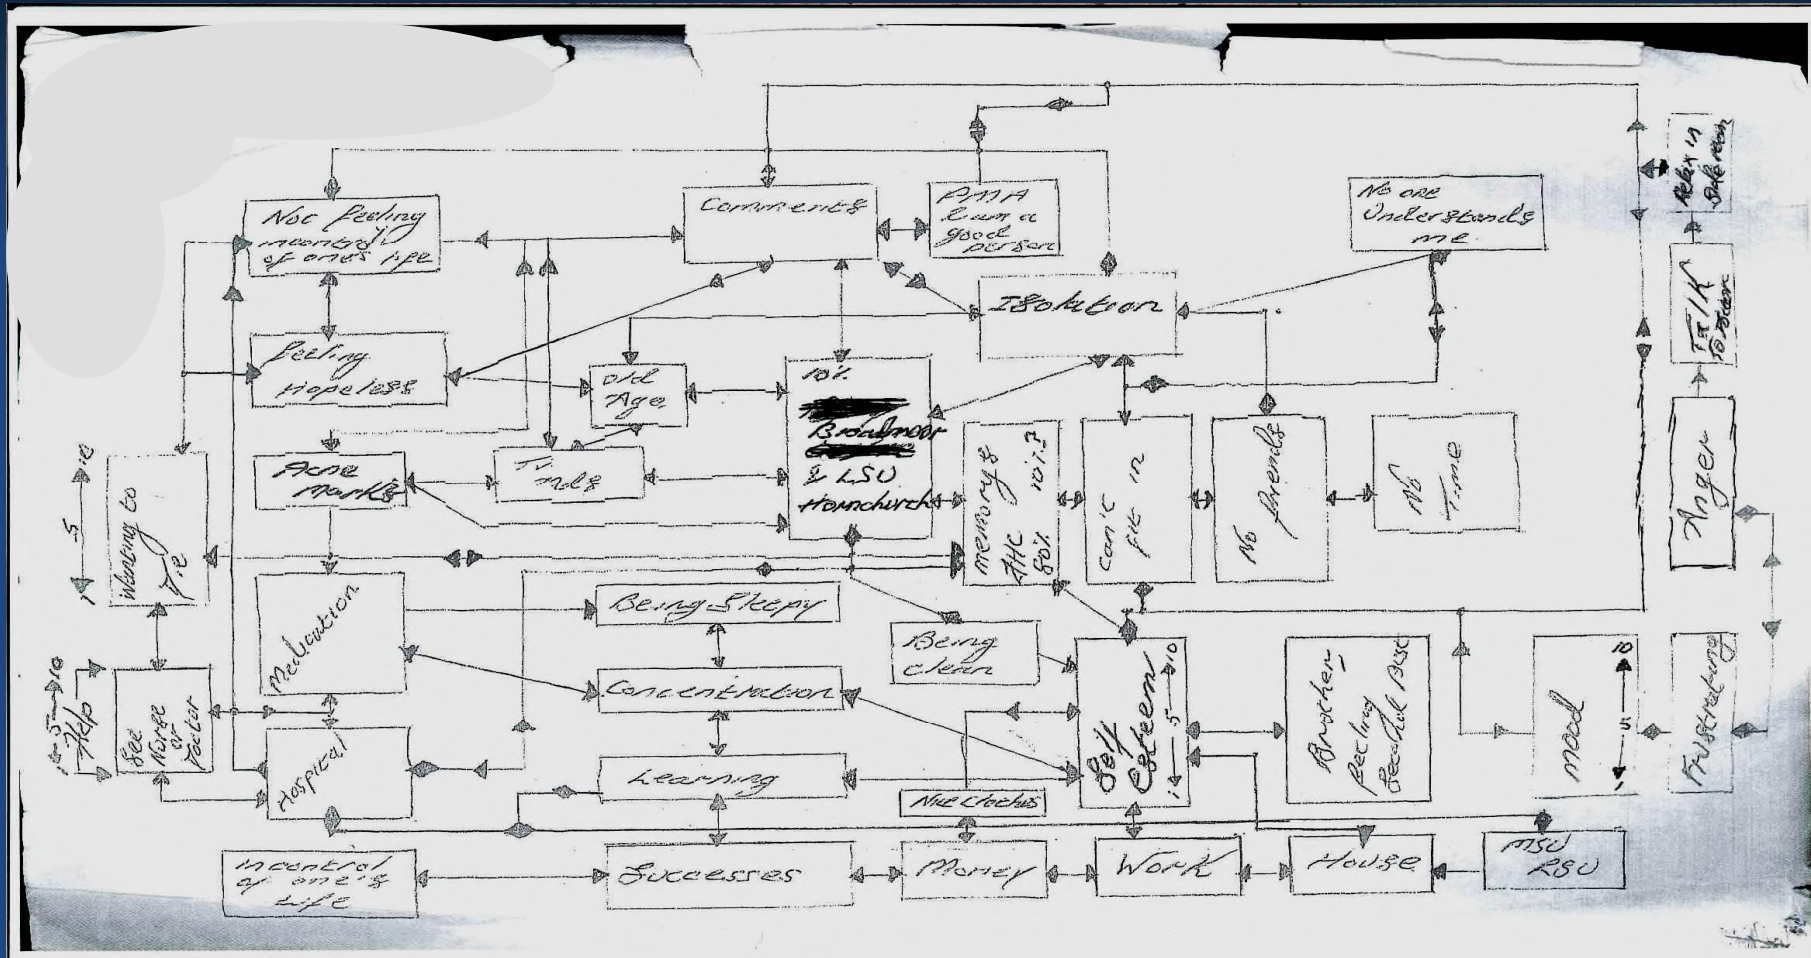 Not feeling
incontrol
of one's life
Comments
PMA
I am a
good
person
No one
Understands
me
Relax in
Talk
Isolation
feeling
Hopeless
Old
Age
10%
Broadmoor
& LSU
Hornchurch
Acne
Marks
memorys
AHC 10%?
80%
Can't
fit in
No friends
No
Time
Anger
10
5
1
Wanting to
Die
Medication
Being Sleepy
Being
clean
Concentration
Self
Esteem
1 5 10
Brother
feeling
Mood
10
5
1
Frustrating
1 5 10
Help
See
Nurse
or
Doctor
Hospital
Learning
Nice Clothes
in control
of one's
Life
Successes
Money
Work
House
MSU
RSU